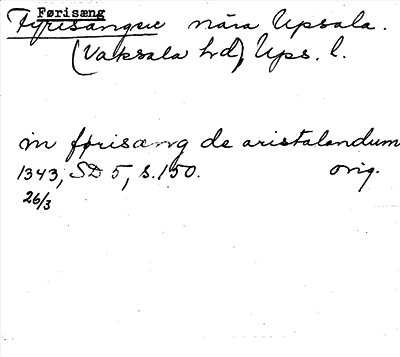 Førisæng
Fyrisängen nära Upsala.
(Vaksala hd), Ups. l.
in førisæng de aristalandum
1343, SD 5, s. 150. orig.
26/3